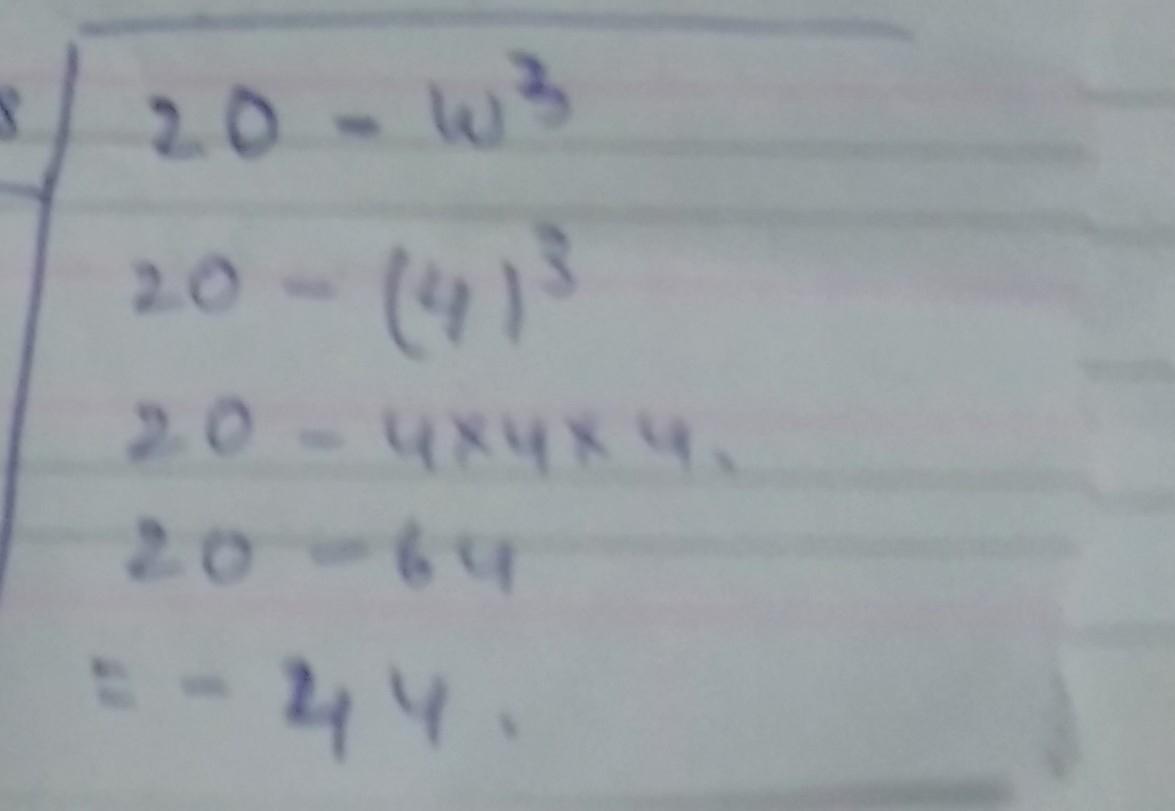 8
20 - w³
20 - (4)³
20 - 4×4×4.
20 - 64
= - 44.